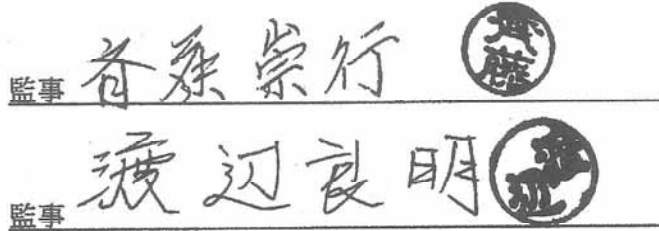 監事 斉藤崇行 齊藤
監事 渡辺良明 渡辺